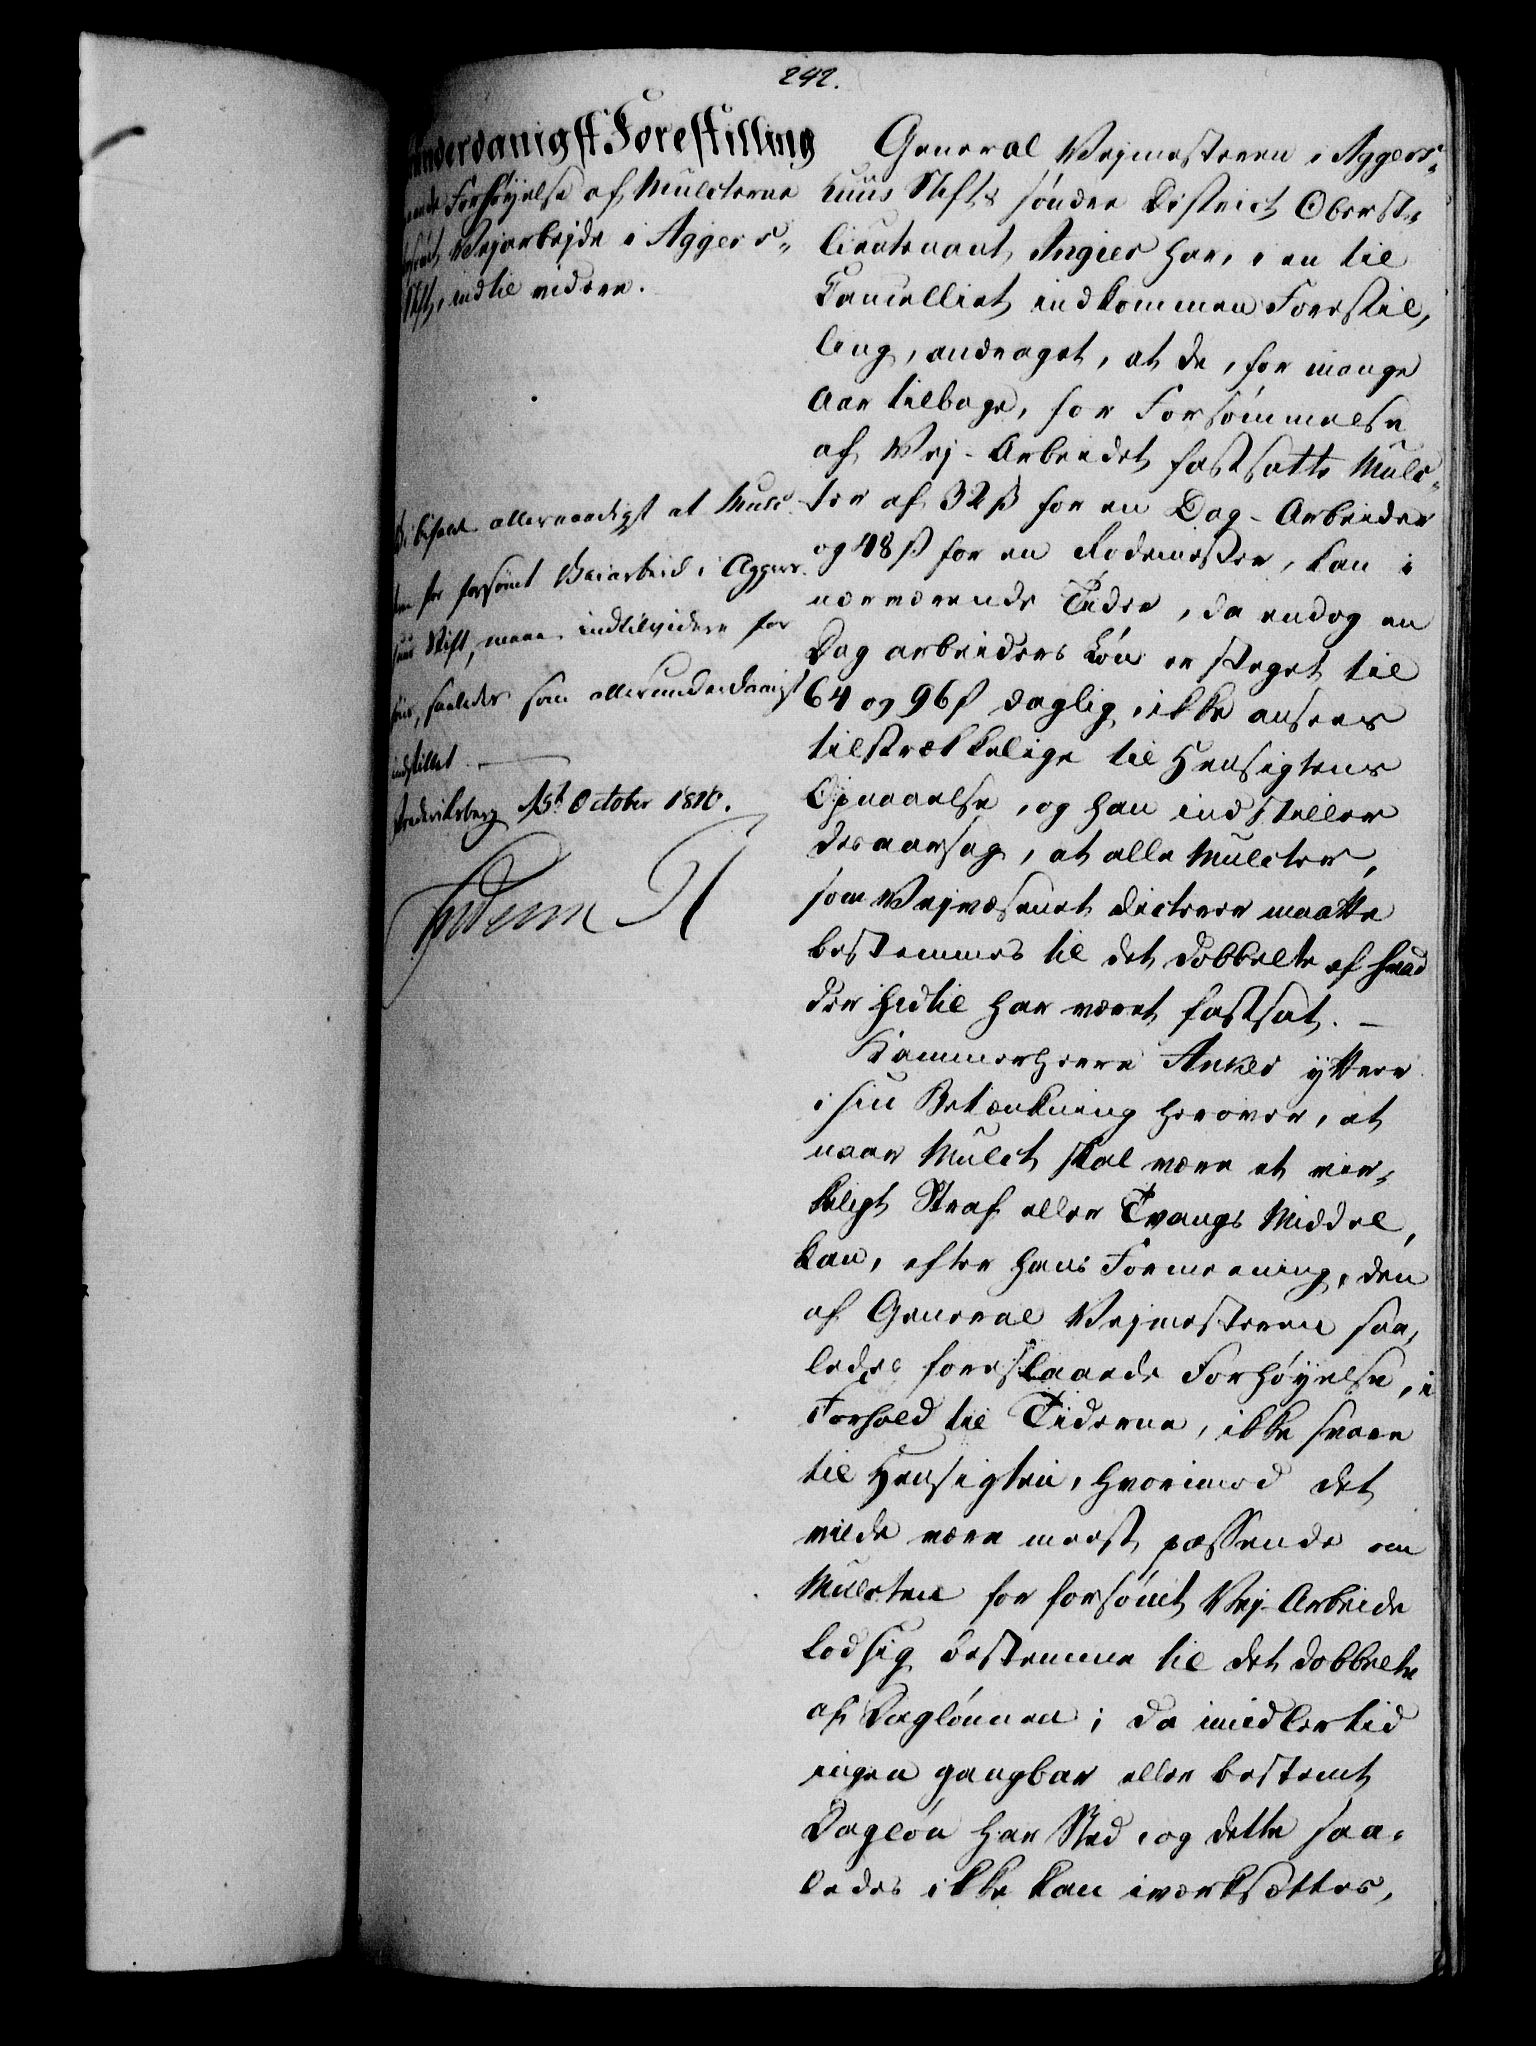 242.
underdanigst Forestilling
Forhøyelse af Mulcterne
Vejarbejde i Aggers-
Stift, indtil videre.
Vi bifalde allernaadigst at Mulc-
ten for forsömt Veiarbeid i Aggers-
huus Stift, maae indtilvidere for-
höies, saaledes som allerunderdanigst
indstillet.
Frederiksberg 15de October 1810.
Frederik R
General Vejmesteren i Aggers-
huus Stifts söndre District Oberst-
lieutenant Angier har, i en til
Cancelliet indkommen Forestil-
ling, andraget, at de, for mange
Aar tilbage, for Forsömmelse
af Vej-Arbeidet fastsatte Mulc-
ter af 32 ß for en Dag-Arbeider
og 48 ß for en Rodemester, kan i
nærværende Tider, da endog en
Dagarbeiders Løn er steget til
64 og 96 ß daglig, ikke ansees
tilstrækkelige til Hensigtens
Opnaaelse, og han indstiller
desaarsag, at alle Mulcter,
som Vejvæsenet dicterer maatte
bestemmes til det dobbelte af hvad
der hidtil har været fastsat. –
Kammerherre Anker yttrer
i sin Betænkning herover, at
naar Mulct skal være et vir-
keligt Straf eller Tvangs Middel,
kan, efter hans Formeening, den
af General Vejmesteren saa-
ledes foreslaaede Forhöyelse, i
Forhold til Tiderne, ikke svare
til Hensigten, hvorimod det
vilde være meest passende om
Mulcten for forsömt Vej-Arbeide
lod sig bestemme til det dobbelte
af Daglönnen; da imidlertid
ingen gangbar eller bestemt
Daglön har Sted, og dette saa-
ledes ikke kan iværksættes,